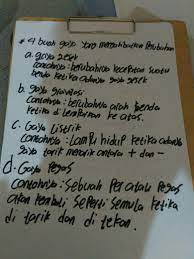 * 4 buah gaya yang mengakibatkan Perubahan
a. gaya gesek
contohnya: berubahnya kecepatan suatu
benda ketika adanya gaya gesek
b. gaya gravitasi
Contohnya: berubahnya arah benda
ketika di lemparkan ke atas.
c. Gaya Listrik
Contohnya: Lampu hidup ketika adanya
gaya tarik menarik antara + dan -
d. Gaya Pegas
contohnya: Sebuah Per atau Pegas
akan kembali seperti semula ketika
di tarik dan di tekan.